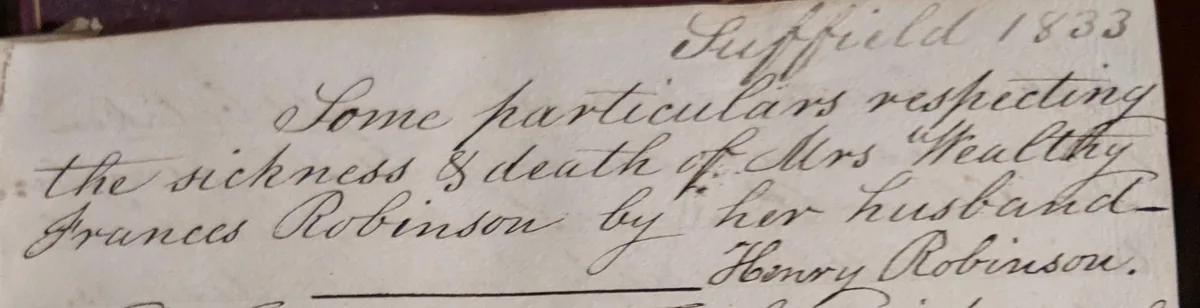 Suffield 1833
Some particulars respecting
the sickness & death of Mrs Wealthy
Frances Robinson by her husband–
Henry Robinson.